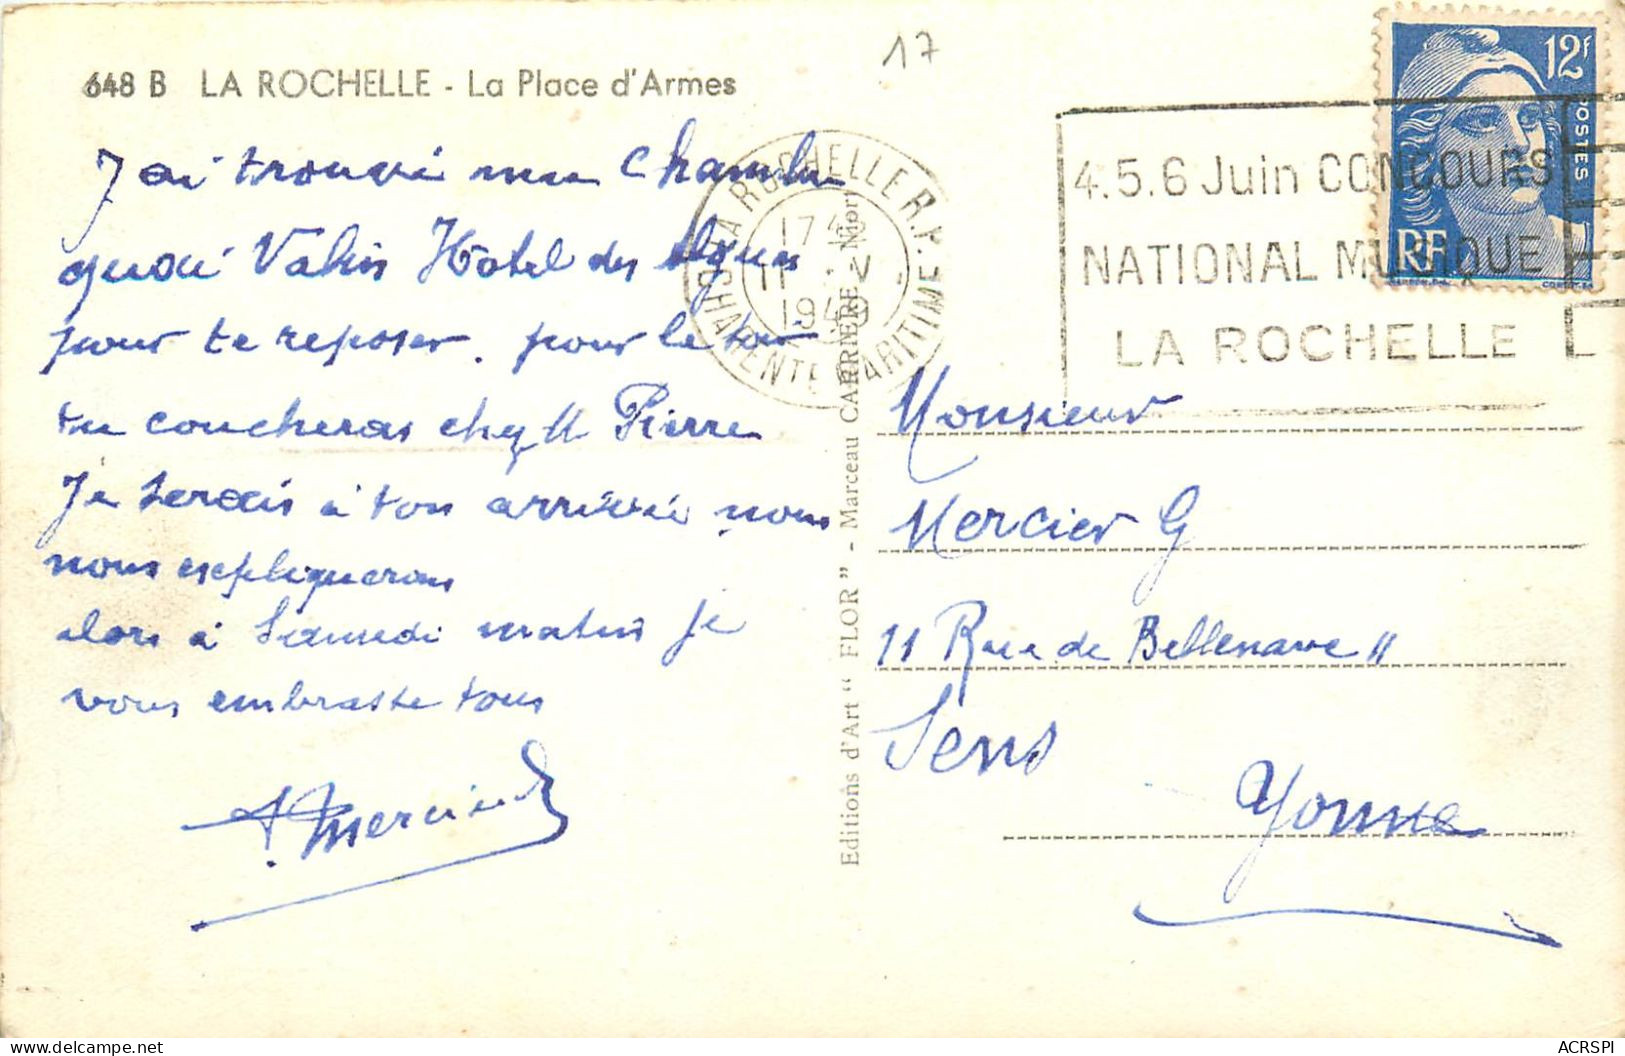 17
648 B LA ROCHELLE - La Place d'Armes
J'ai trouvé une Chambre
quai Valin Hotel des
pour te reposer. pour le soir
tu coucheras chez M Pierre
Je serais à ton arrivée nous
nous expliquerons
alors à Samedi matin je
vous embrasse tous
Mercier
LA ROCHELLE R.P.
17
11 V
1949
CHARENTE MARITIME
4.5.6 Juin CONCOURS
NATIONAL MUSIQUE
LA ROCHELLE
12F
POSTES
RF
Editions d'Art "FLOR" - Marceau CARRIERE, Niort
Monsieur
Mercier G
11 Rue de Bellenave 11
Sens
Yonne
ACRSPI